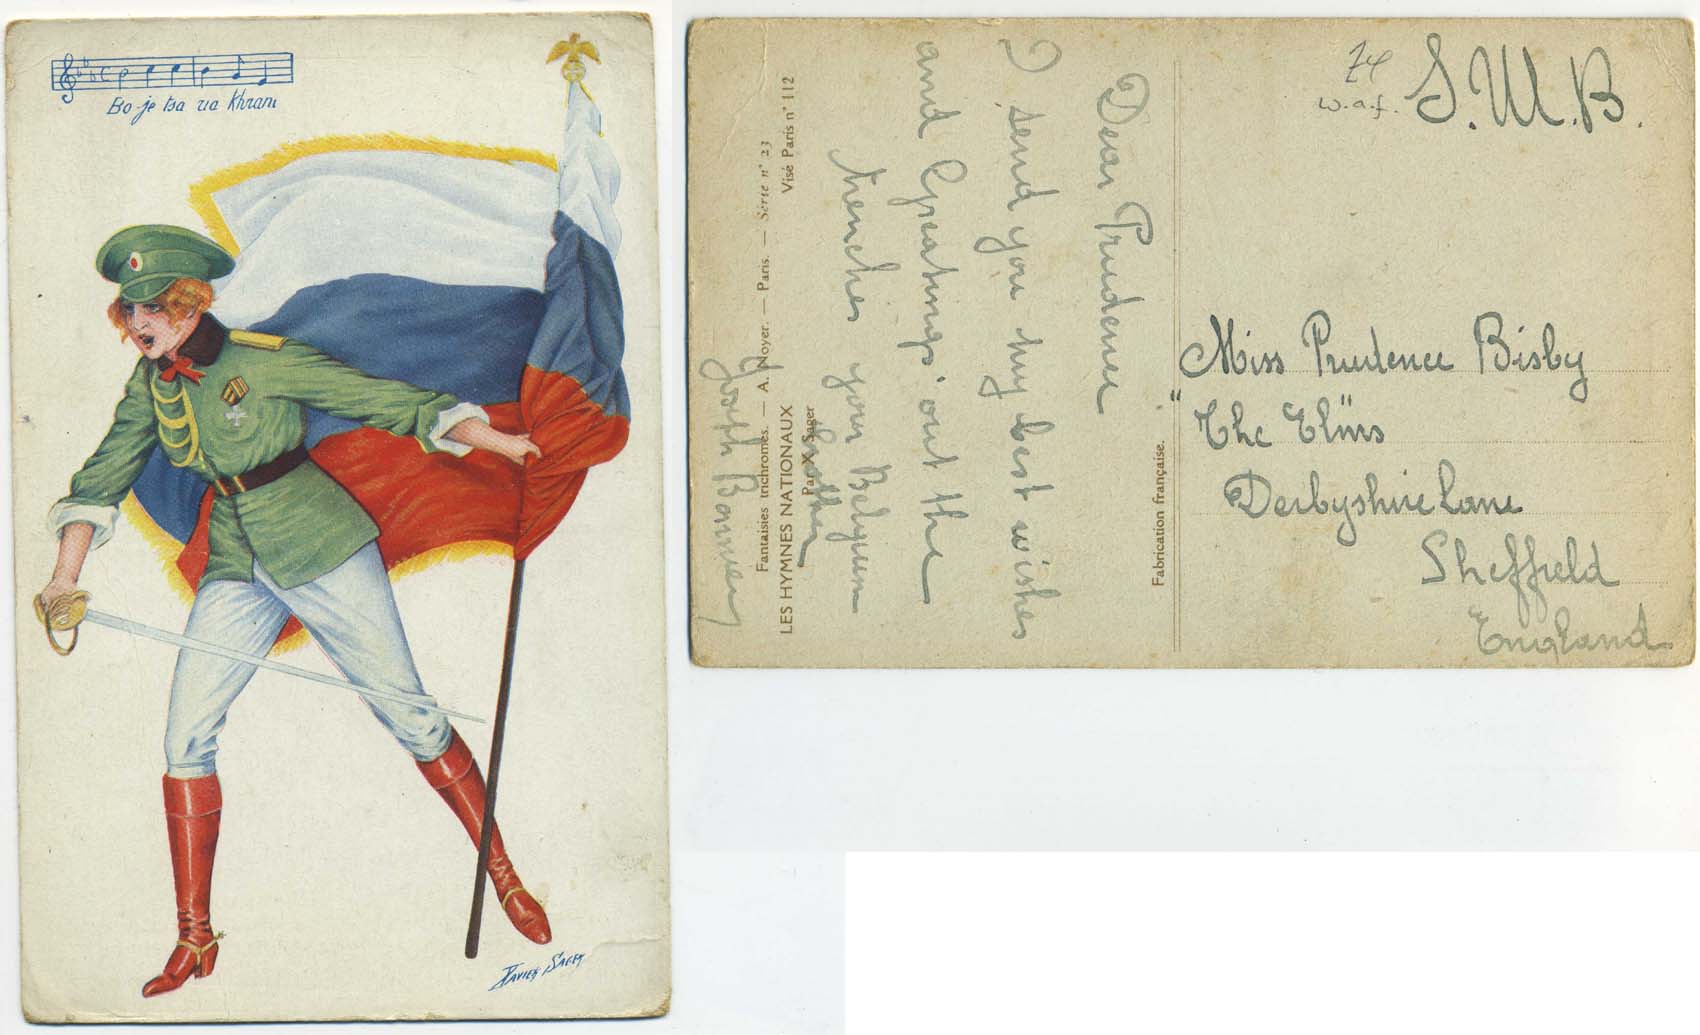 Bo-je tsa ria khrani
XAVIER SAGER
Dear Prudence
I send you my best wishes
and Greatings' out the
trenches your Belgium
brother
Joseph
Fantaisies trichromes. — A. Noyer. — Paris. — Série n° 23
LES HYMNES NATIONAUX Visé Paris n° 112
Par X. Sager
Fabrication française.
w.a.f.
S.M.B.
Miss Prudence Bisby
"The Elms
Derbyshire Lane
Sheffield
England